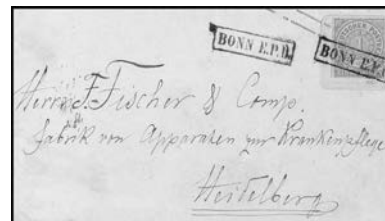 BONN E.P.B.
BONN E.P.B.
Herrn F. Fischer & Comp.
Fabrik von Apparaten zur Krankenpflege
Heidelberg